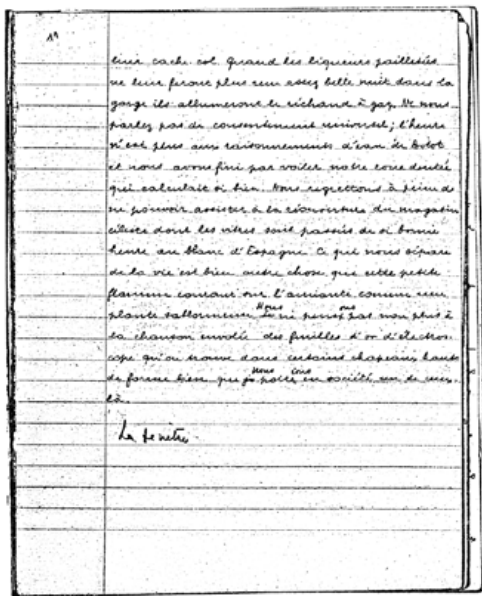 leur cache-col. Quand les liqueurs pailletées
ne leur feront plus une assez belle nuit dans la
gorge ils allumeront le réchaud à gaz. Ne nous
parlez pas de consentement universel ; l'heure
n'est plus aux raisonnements d'eau de Botot
et nous avons fini par voiler notre roue dentée
qui calculait si bien. Nous regrettons à peine de
ne pouvoir assister à la réouverture du magasin
céleste dont les vitres sont passées de si bonne
heure au blanc d'Espagne. Ce qui nous sépare
de la vie est bien autre chose que cette petite
flamme courant sur l'amiante comme une
plante sablonneuse Nous ne pensons pas non plus à
la chanson envolée des feuilles d'or d'électros-
cope qu'on trouve dans certains chapeaux hauts
de forme bien que nous en société un de ceux-
là.
La fenêtre